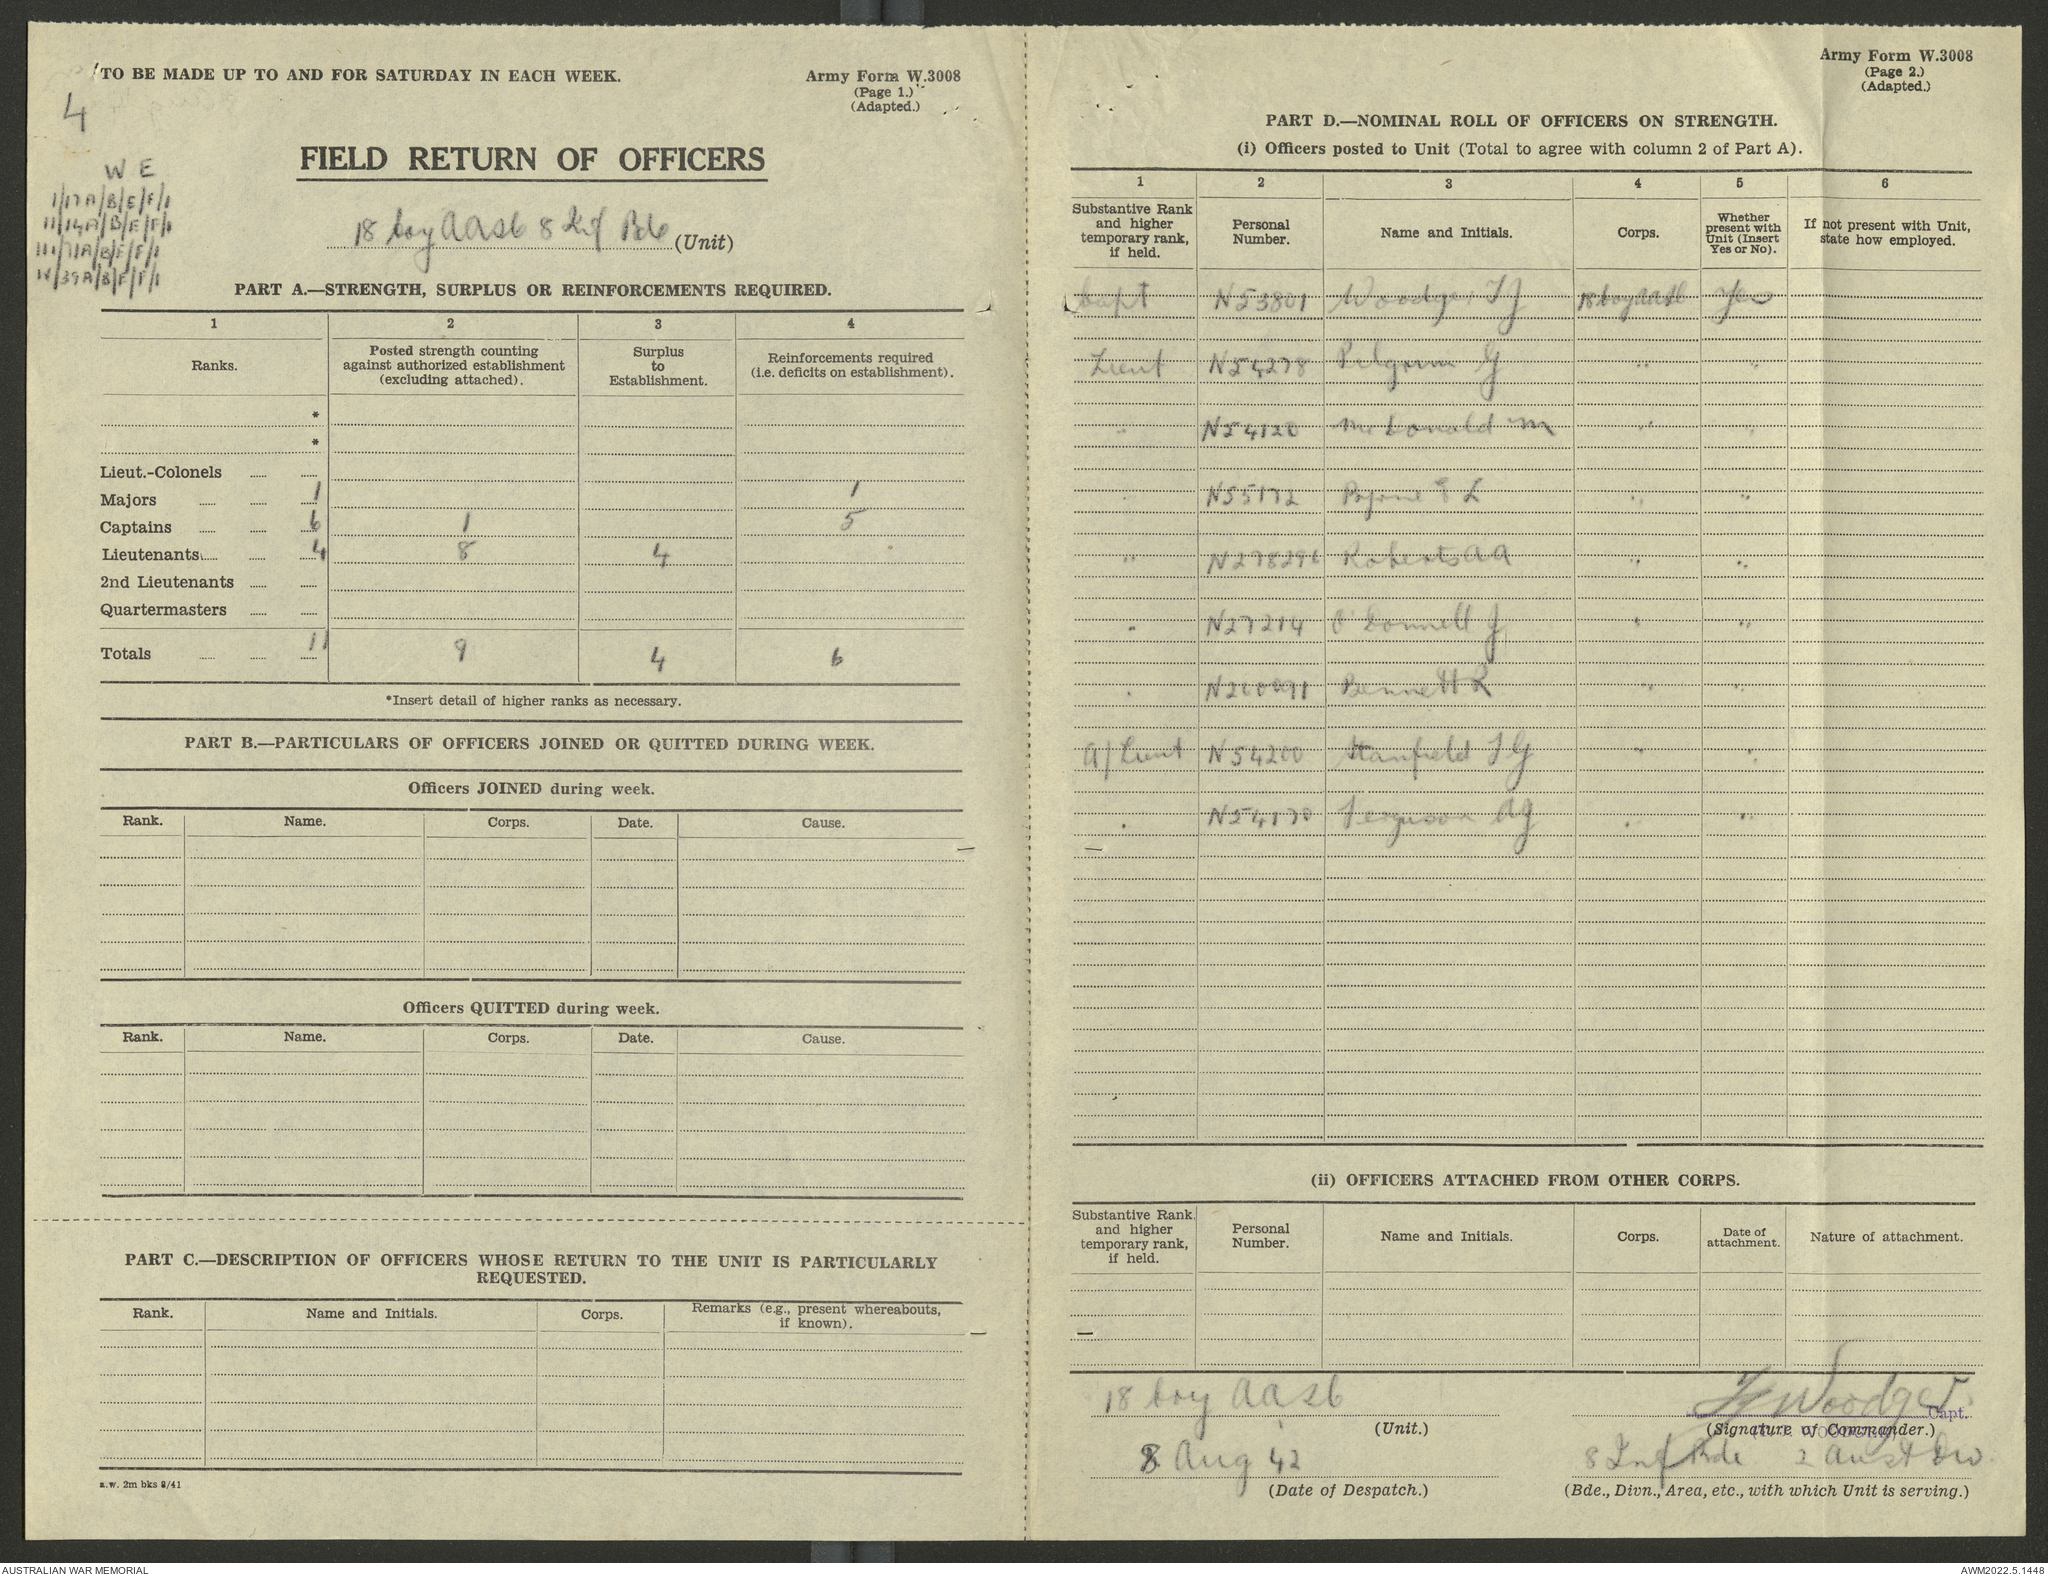 TO BE MADE UP TO AND FOR SATURDAY IN EACH WEEK.
Army Form W.3008
(Page 1.)
(Adapted.)
4
W E
1/17A/B/E/F/1
11/14A/B/E/F/1
111/71A/B/E/F/1
IV/39A/B/E/F/1
FIELD RETURN OF OFFICERS
18 Coy AASC 8 Inf Bde (Unit)
PART A.—STRENGTH, SURPLUS OR REINFORCEMENTS REQUIRED.
1 2 3 4
Ranks.
Posted strength counting against authorized establishment (excluding attached).
Surplus to Establishment.
Reinforcements required (i.e. deficits on establishment).
*
*
Lieut.-Colonels
Majors 1 1
Captains 6 1 5
Lieutenants 4 8 4
2nd Lieutenants
Quartermasters
Totals 11 9 4 6
*Insert detail of higher ranks as necessary.
PART B.—PARTICULARS OF OFFICERS JOINED OR QUITTED DURING WEEK.
Officers JOINED during week.
Rank. Name. Corps. Date. Cause.
Officers QUITTED during week.
Rank. Name. Corps. Date. Cause.
PART C.—DESCRIPTION OF OFFICERS WHOSE RETURN TO THE UNIT IS PARTICULARLY
REQUESTED.
Rank. Name and Initials. Corps. Remarks (e.g., present whereabouts, if known).
a.w. 2m bks 8/41
Army Form W.3008
(Page 2.)
(Adapted.)
PART D.—NOMINAL ROLL OF OFFICERS ON STRENGTH.
(i) Officers posted to Unit (Total to agree with column 2 of Part A).
1 2 3 4 5 6
Substantive Rank and higher temporary rank, if held.
Personal Number.
Name and Initials.
Corps.
Whether present with Unit (Insert Yes or No).
If not present with Unit, state how employed.
Capt N53801 Woodger TJ 18 Coy AASC Yes
Lieut N54278 Pilgrim G " "
" N54120 McDonald M " "
" N55172 E L " "
" Roberts AA " "
" N27214 O'Donnell J " "
" Bennett R " "
A/Lieut N54200 Stanfield J G " "
" N54170 Ferguson AG " "
(ii) OFFICERS ATTACHED FROM OTHER CORPS.
Substantive Rank and higher temporary rank, if held.
Personal Number.
Name and Initials.
Corps.
Date of attachment.
Nature of attachment.
18 Coy AASC
(Unit.)
TJ Woodger Capt.
(Signature of Commander.)
8 Aug 42
(Date of Despatch.)
8 Inf Bde 2 Aust Div
(Bde., Divn., Area, etc., with which Unit is serving.)
AUSTRALIAN WAR MEMORIAL
AWM2022.5.1448